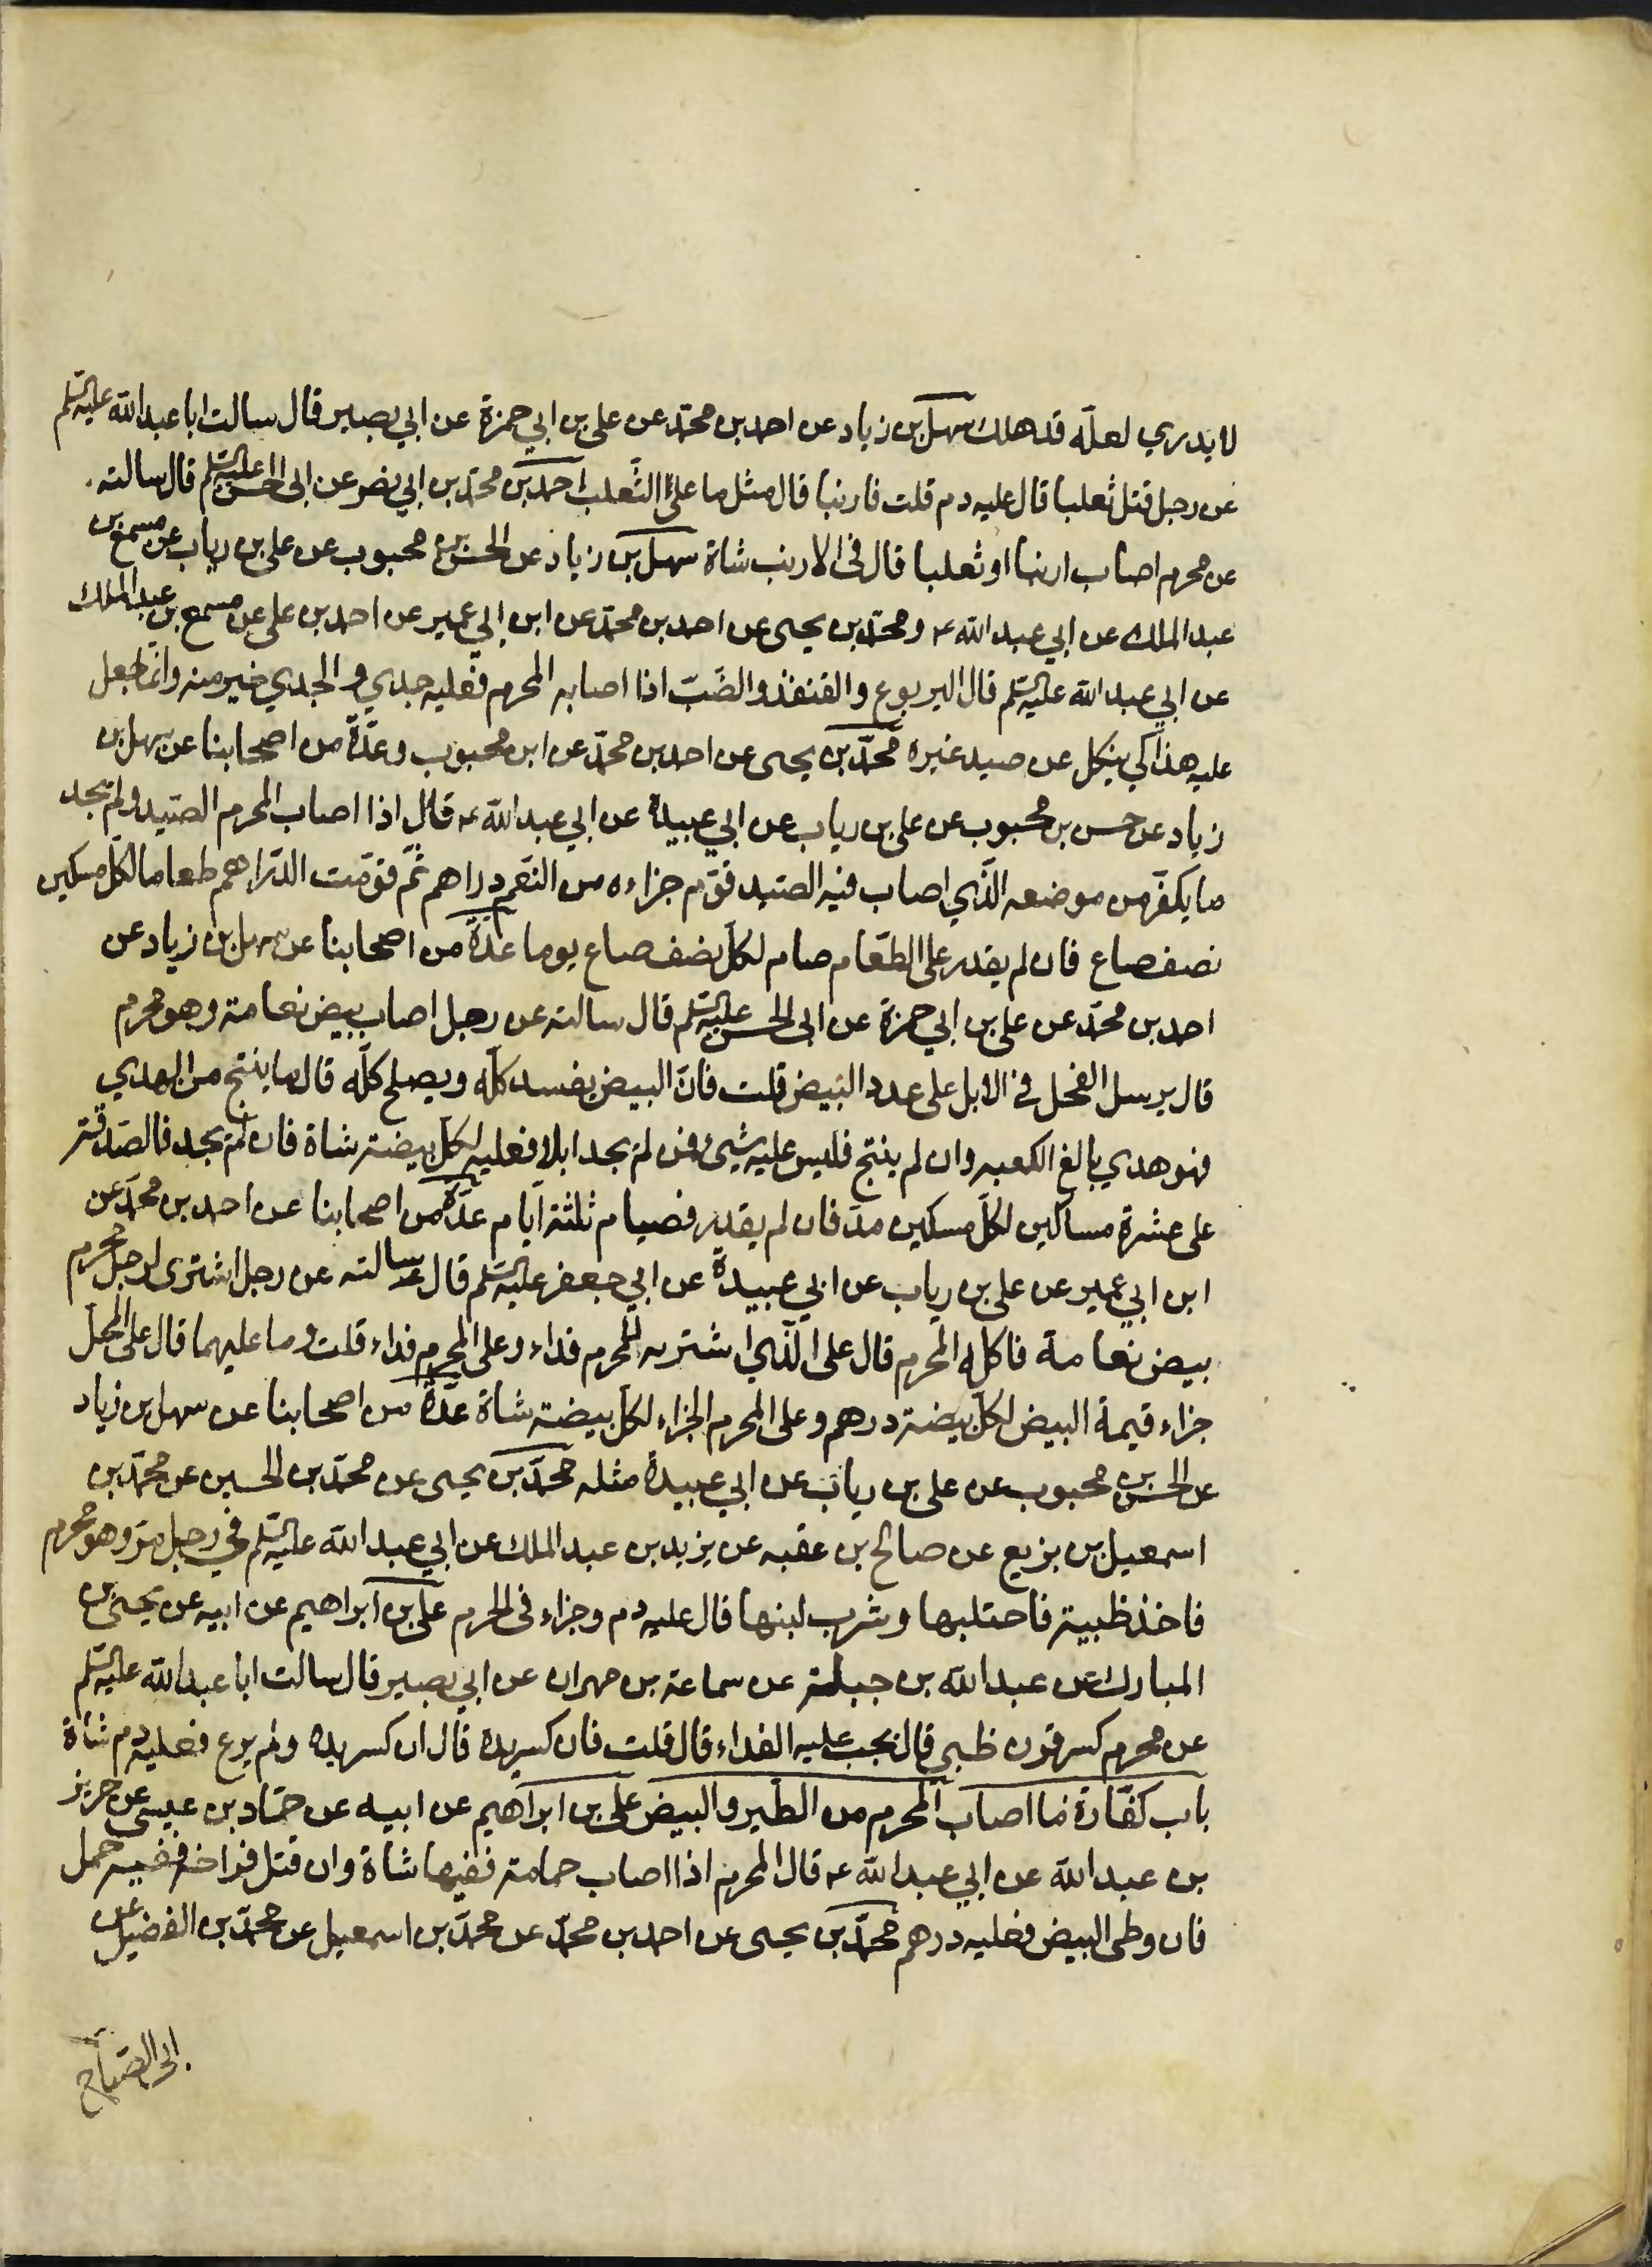 لا يدري لعلّه قد هلك سهل بن زياد عن احمد بن محمّد عن علي بن ابي حمزة عن ابي بصير قال سالت ابا عبد الله عليه السّلم
عن رجل قتل ثعلبا قال عليه دم قلت فارنبا قال مثل ما على الثّعلب احمد بن محمّد بن ابي نصر عن ابى الحسن عليه السّلم قال سالته
عن محرم اصاب ارنبا او ثعلبا قال فى الارنب شاة سهل بن زياد عن الحسن بن محبوب عن علي بن رياب عن مسمع بن
عبد الملك عن ابي عبد الله ع و محمّد بن يحيى عن احمد بن محمّد عن ابن ابي عمير عن احمد بن علي عن مسمع بن عبد الملك
عن ابي عبد الله عليه السّلم قال اليربوع والقنفذ والضّبّ اذا اصابه المحرم فعليه جدي و الجدي خير منه وانّما جعل
عليه هذا كي ينكل عن صيد غيره محمّد بن يحيى عن احمد بن محمّد عن ابن محبوب وعدّة من اصحابنا عن سهل بن
زياد عن حسن بن محبوب عن علي بن رياب عن ابي عبيدة عن ابي عبد الله ع قال اذا اصاب المحرم الصّيد ولم يجد
ما يكفّر من موضعه الّذي اصاب فيه الصّيد قوّم جزاءه من النّعم دراهم ثمّ قوّمت الدّراهم طعاما لكلّ مسكين
نصف صاع فان لم يقدر على الطّعام صام لكلّ نصف صاع يوما عدّة من اصحابنا عن سهل بن زياد عن
احمد بن محمّد عن علي بن ابي حمزة عن ابى الحسن عليه السّلم قال سالته عن رجل اصاب بيض نعامة وهو محرم
قال يرسل الفحل في الابل على عدد البيض قلت فانّ البيض يفسد كلّه ويصلح كلّه قال ما ينتج من الهدي
فهو هدي بالغ الكعبه وان لم ينتج فليس عليه شيئ فمن لم يجد ابلا فعليه لكلّ بيضة شاة فان لم يجد فالصّدقة
على عشرة مساكين لكلّ مسكين مدّ فان لم يقدر فصيام ثلثة ايّام عدّة من اصحابنا عن احمد بن محمّد عن
ابن ابي عمير عن علي بن رياب عن ابي عبيدة عن ابي جعفر عليه السّلم قال سالته عن رجل اشترى لرجل محرم
بيض نعامة فاكله المحرم قال على الّذي اشتريه للمحرم فداء وعلى المحرم فداء قلت وما عليهما قال على المحلّ
جزاء قيمة البيض لكلّ بيضة درهم وعلى المحرم الجزاء لكلّ بيضة شاة عدّة من اصحابنا عن سهل بن زياد
عن الحسن بن محبوب عن علي بن رياب عن ابي عبيدة مثله محمّد بن يحيى عن محمّد بن الحسين عن محمّد بن
اسمعيل بن بزيع عن صالح بن عقبه عن يزيد بن عبد الملك عن ابي عبد الله عليه السّلم في رجل مرّ وهو محرم
فاخذ ظبية فاحتلبها وشرب لبنها قال عليه دم وجزاء فى الحرم علي بن ابراهيم عن ابيه عن يحيى بن
المبارك عن عبد الله بن جبلة عن سماعة بن مهران عن ابي بصير قال سالت ابا عبد الله عليه السّلم
عن محرم كسر قرن ظبي قال يجب عليه الفداء قال قلت فان كسر يده قال ان كسر يده ولم يرع فعليه دم شاة
باب كفّارة ما اصاب المحرم من الطّير و البيض علي بن ابراهيم عن ابيه عن حمّاد بن عيسى عن حريز
بن عبد الله عن ابي عبد الله ع قال المحرم اذا اصاب حمامة ففيها شاة وان قتل فراخه ففيه حمل
فان وطى البيض فعليه درهم محمّد بن يحيى عن احمد بن محمّد عن محمّد بن اسمعيل عن محمّد بن الفضيل عن
ابى الصّباح